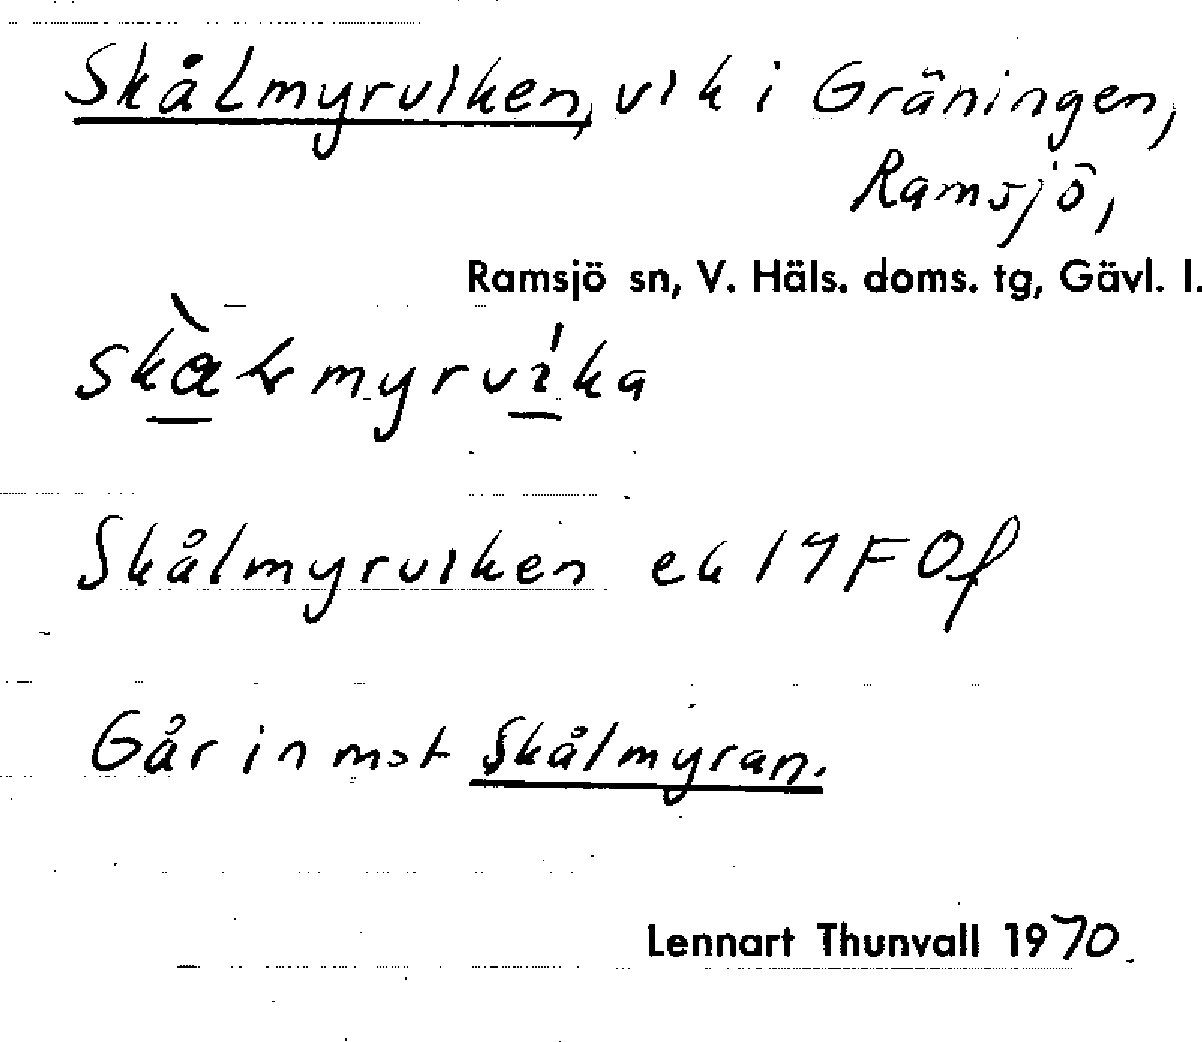 Skålmyrviken, vik i Gräningen,
Ramsjö,
Ramsjö sn, V. Häls. doms. tg, Gävl. l.
Skålmyrviken ek 17F0f
Går in mot Skålmyran.
Lennart Thunvall 1970